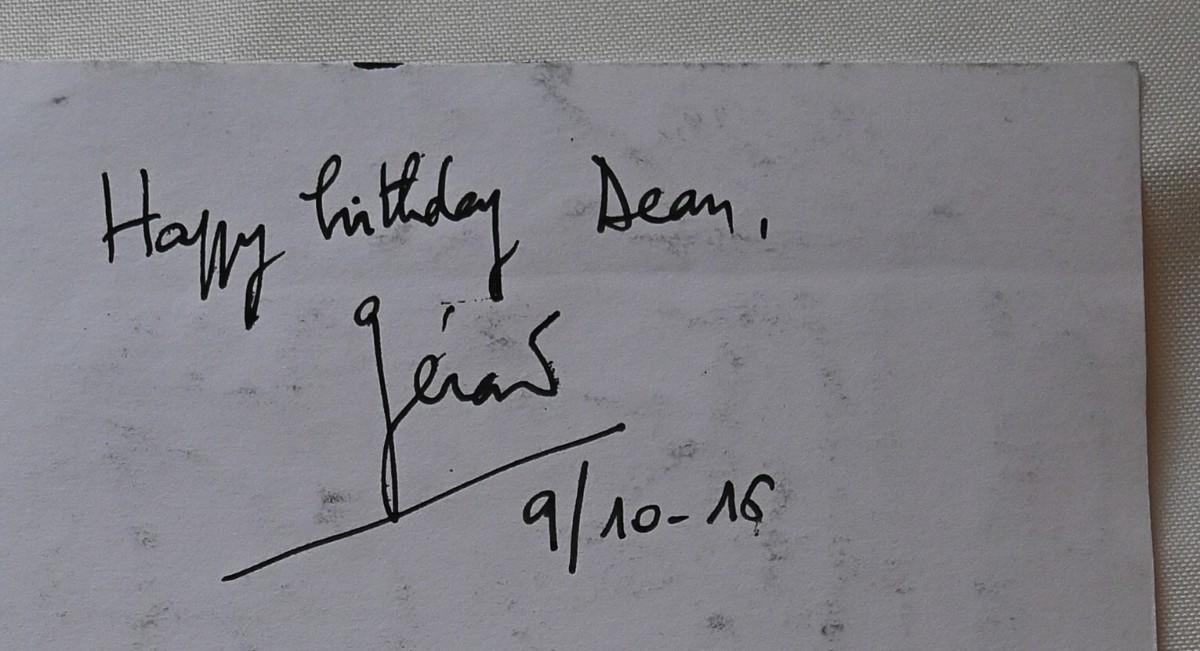 Happy birthday Dean,
Gérard
9/10-16